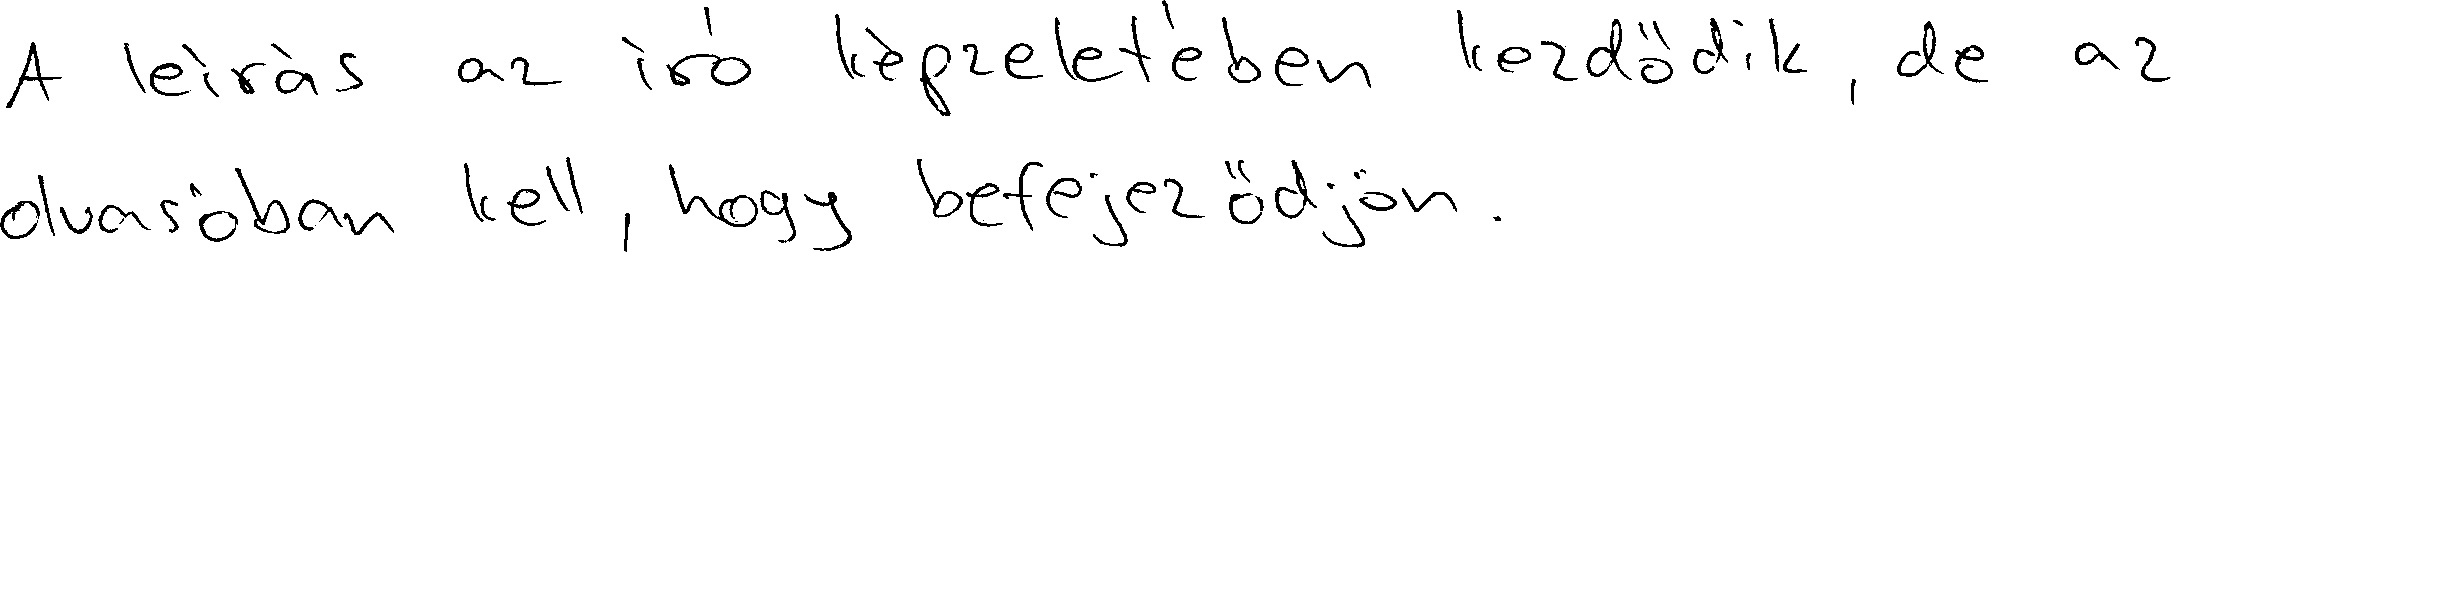 A leírás az író képzeletében kezdődik, de az
olvasóban kell, hogy befejeződjön.